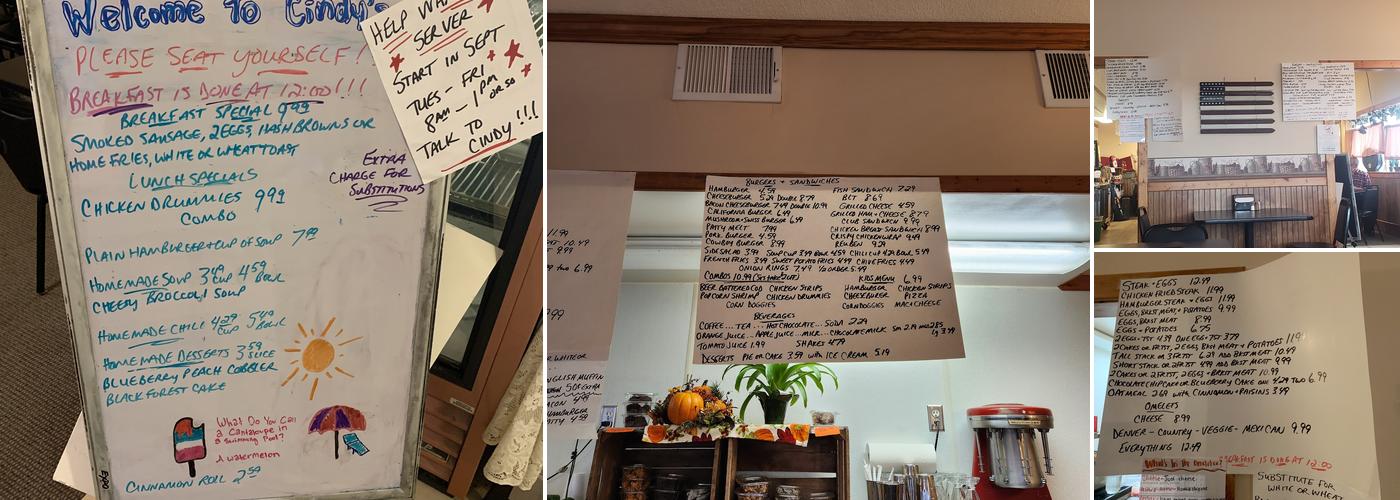 Welcome To Cindy's
PLEASE SEAT YOURSELF!
BREAKFAST IS DONE AT 12:00!!!
BREAKFAST SPECIAL 9.99
SMOKED SAUSAGE, 2 EGGS, HASHBROWNS OR
HOME FRIES, WHITE OR WHEAT TOAST
LUNCH SPECIALS
CHICKEN DRUMMIES 9.99
COMBO
EXTRA
CHARGE FOR
SUBSTITUTIONS
PLAIN HAMBURGER + CUP OF SOUP 7.99
HOMEMADE SOUP 3.49 CUP 4.59 BOWL
CHEESY BROCCOLI SOUP
HOMEMADE CHILI 4.29 CUP 5.49 BOWL
HOMEMADE DESSERTS 3.59 SLICE
BLUEBERRY PEACH COBBLER
BLACK FOREST CAKE
What Do You Call
a Cantaloupe in
a Swimming Pool?
A watermelon
CINNAMON ROLL 2.59
EXPO
HELP WA
SERVER
START IN SEPT
TUES - FRI
8AM - 1PM OR SO
TALK TO
CINDY!!!
BURGERS + SANDWICHES
HAMBURGER 4.59 FISH SANDWICH 7.29
CHEESEBURGER 5.29 DOUBLE 8.79 BLT 8.69
BACON CHEESEBURGER 7.49 DOUBLE 10.99 GRILLED CHEESE 4.59
CALIFORNIA BURGER 6.49 GRILLED HAM + CHEESE 8.79
MUSHROOM + SWISS BURGER 6.99 CLUB SANDWICH 9.99
PATTY MELT 7.99 CHICKEN BREAST SANDWICH 8.99
PORK BURGER 4.59 CRISPY CHICKEN WRAP 9.49
COWBOY BURGER 8.99 REUBEN 9.29
SIDE SALAD 3.99 SOUP CUP 3.49 BOWL 4.59 CHILI CUP 4.29 BOWL 5.49
FRENCH FRIES 3.49 SWEET POTATO FRIES 4.49 CHIVE FRIES 4.49
ONION RINGS 7.49 1/2 ORDER 5.49
COMBOS 10.99 KIDS MENU 6.99
BEER BATTERED COD CHICKEN STRIPS HAMBURGER CHICKEN STRIPS
POPCORN SHRIMP CHICKEN DRUMMIES CHEESEBURGER PIZZA
CORN DOGGIES CORN DOGGIES MAC + CHEESE
BEVERAGES
COFFEE... TEA... HOT CHOCOLATE... SODA 2.29
ORANGE JUICE... APPLE JUICE... MILK... CHOCOLATE MILK SM 2.19 MED 2.85 LG 3.79
TOMATO JUICE 1.99 SHAKES 4.79
DESSERTS PIE OR CAKE 3.59 WITH ICE CREAM 5.19
11.99
10.49
8.99
TWO 6.99
WHITE OR
ENGLISH MUFFIN
50¢ EXTRA
HAMBURGER
STEAK + EGGS 12.49
CHICKEN FRIED STEAK 11.99
HAMBURGER STEAK + EGGS 11.99
EGGS, BRKST MEAT, + POTATOES 9.99
EGGS, BRKST MEAT 8.99
EGGS + POTATOES 6.75
2 EGGS + TST 4.39 ONE EGG + TST 3.79
2 CAKES OR FR TST, 2 EGGS, BKST MEAT + POTATOES 11.99
TALL STACK OR 3 FR TST 6.29 ADD BKST MEAT 10.49
SHORT STACK OR 2 FR TST 4.99 ADD BKST MEAT 9.99
2 CAKES OR 2 FR TST, 2 EGGS + BRKST MEAT 10.99
CHOCOLATE CHIP CAKE OR BLUEBERRY CAKE ONE 4.29 TWO 6.99
OATMEAL 2.69 WITH CINNAMON + RAISINS 3.49
OMELETS
CHEESE 8.99
DENVER - COUNTRY - VEGGIE - MEXICAN 9.99
EVERYTHING 12.49
BREAKFAST IS DONE AT 12:00
What's In the Omelets?
Cheese - Just cheese
SUBSTITUTE FOR
WHITE OR WHEAT